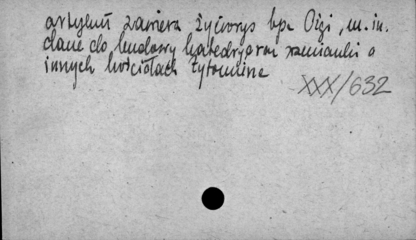 artykuł zawiera życiorys bpa Ożgi, m. in.
dane do budowy katedry oraz wzmianki o
innych kościołach Żytomierza
XXX/632